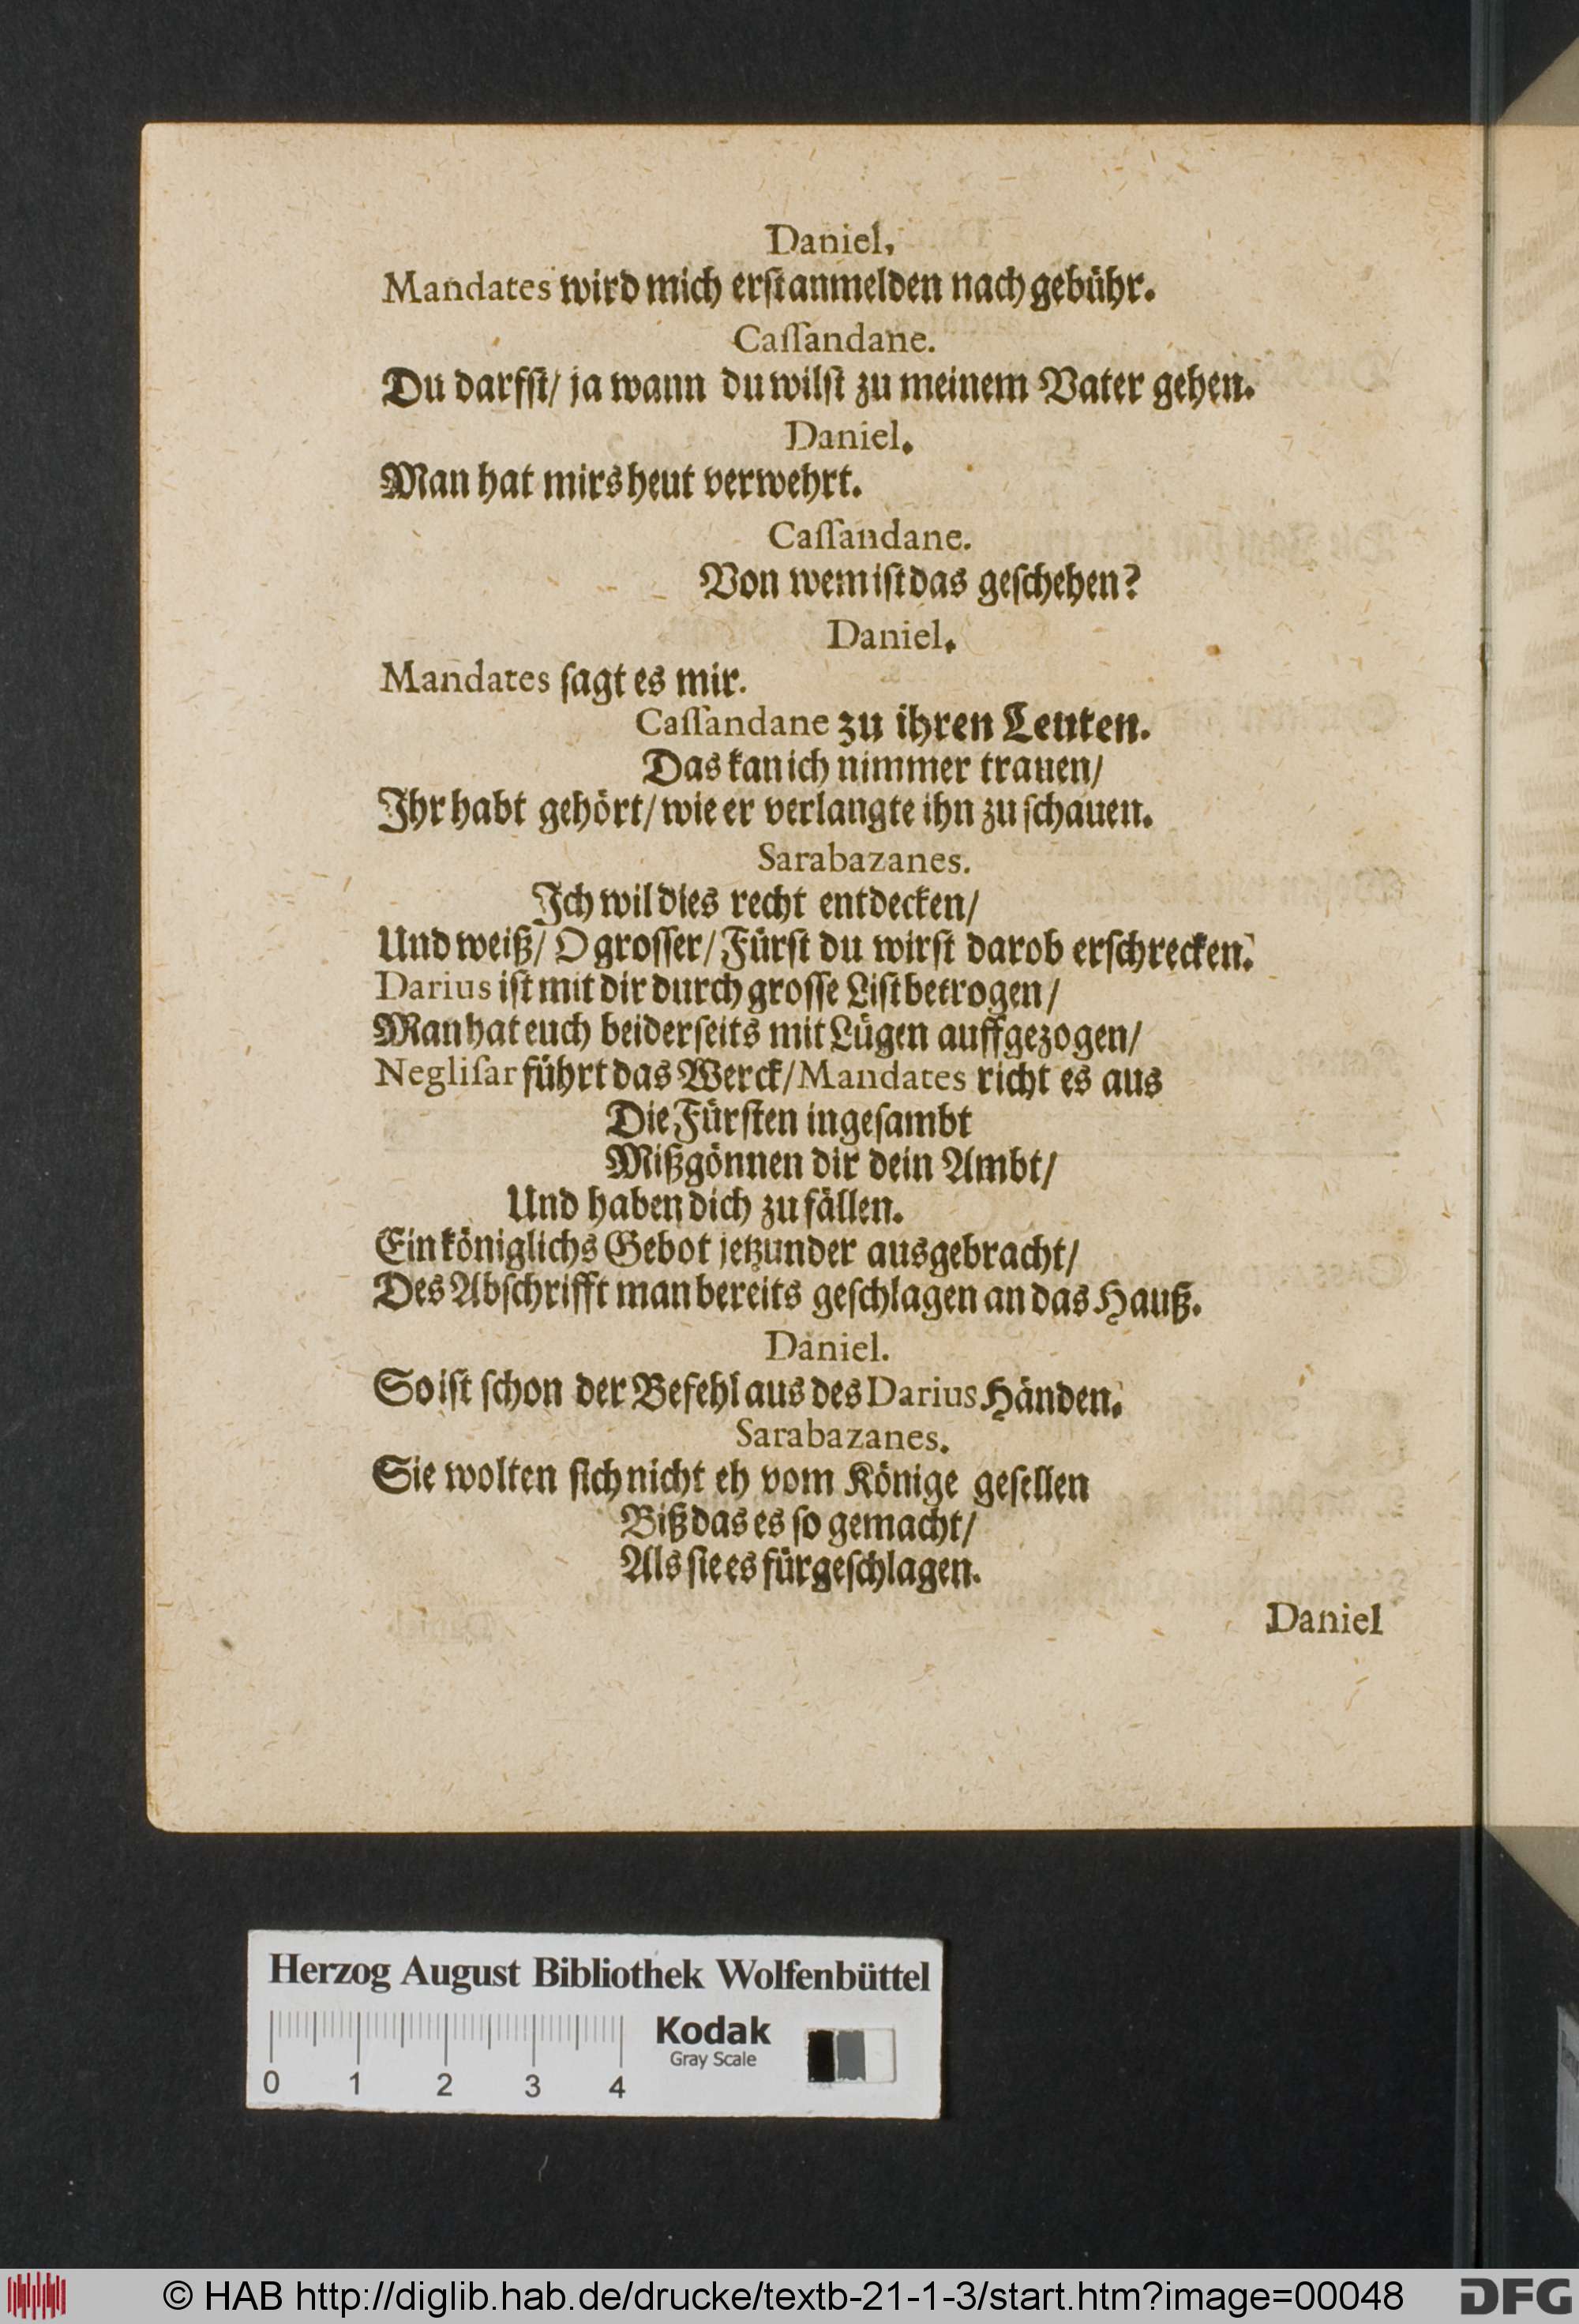 Daniel.
Mandates wird mich erſt anmelden nach gebühr.
Caſſandane.
Du darfſt/ ja wann du wilſt zu meinem Vater gehen.
Daniel.
Man hat mirs heut verwehrt.
Caſſandane.
Von wem iſt das geſchehen?
Daniel.
Mandates ſagt es mir.
Caſſandane zu ihren Leuten.
Das kan ich nimmer trauen/
Ihr habt gehört/ wie er verlangte ihn zu ſchauen.
Sarabazanes.
Ich wil dies recht entdecken/
Und weiß/ O groſſer/ Fürſt du wirſt darob erſchrecken.
Darius iſt mit dir durch groſſe Liſt betrogen/
Man hat euch beiderſeits mit Lügen auffgezogen/
Negliſar führt das Werck/ Mandates richt es aus
Die Fürſten ingeſambt
Mißgönnen dir dein Ambt/
Und haben dich zu fällen.
Ein königlichs Gebot jetzunder ausgebracht/
Des Abſchrifft man bereits geſchlagen an das Hauß.
Daniel.
So iſt ſchon der Befehl aus des Darius Händen.
Sarabazanes.
Sie wolten ſich nicht eh vom Könige geſellen
Biß das es ſo gemacht/
Als ſie es fürgeſchlagen.
Daniel
Herzog August Bibliothek Wolfenbüttel
Kodak
Gray Scale
0 1 2 3 4
© HAB http://diglib.hab.de/drucke/textb-21-1-3/start.htm?image=00048
DFG